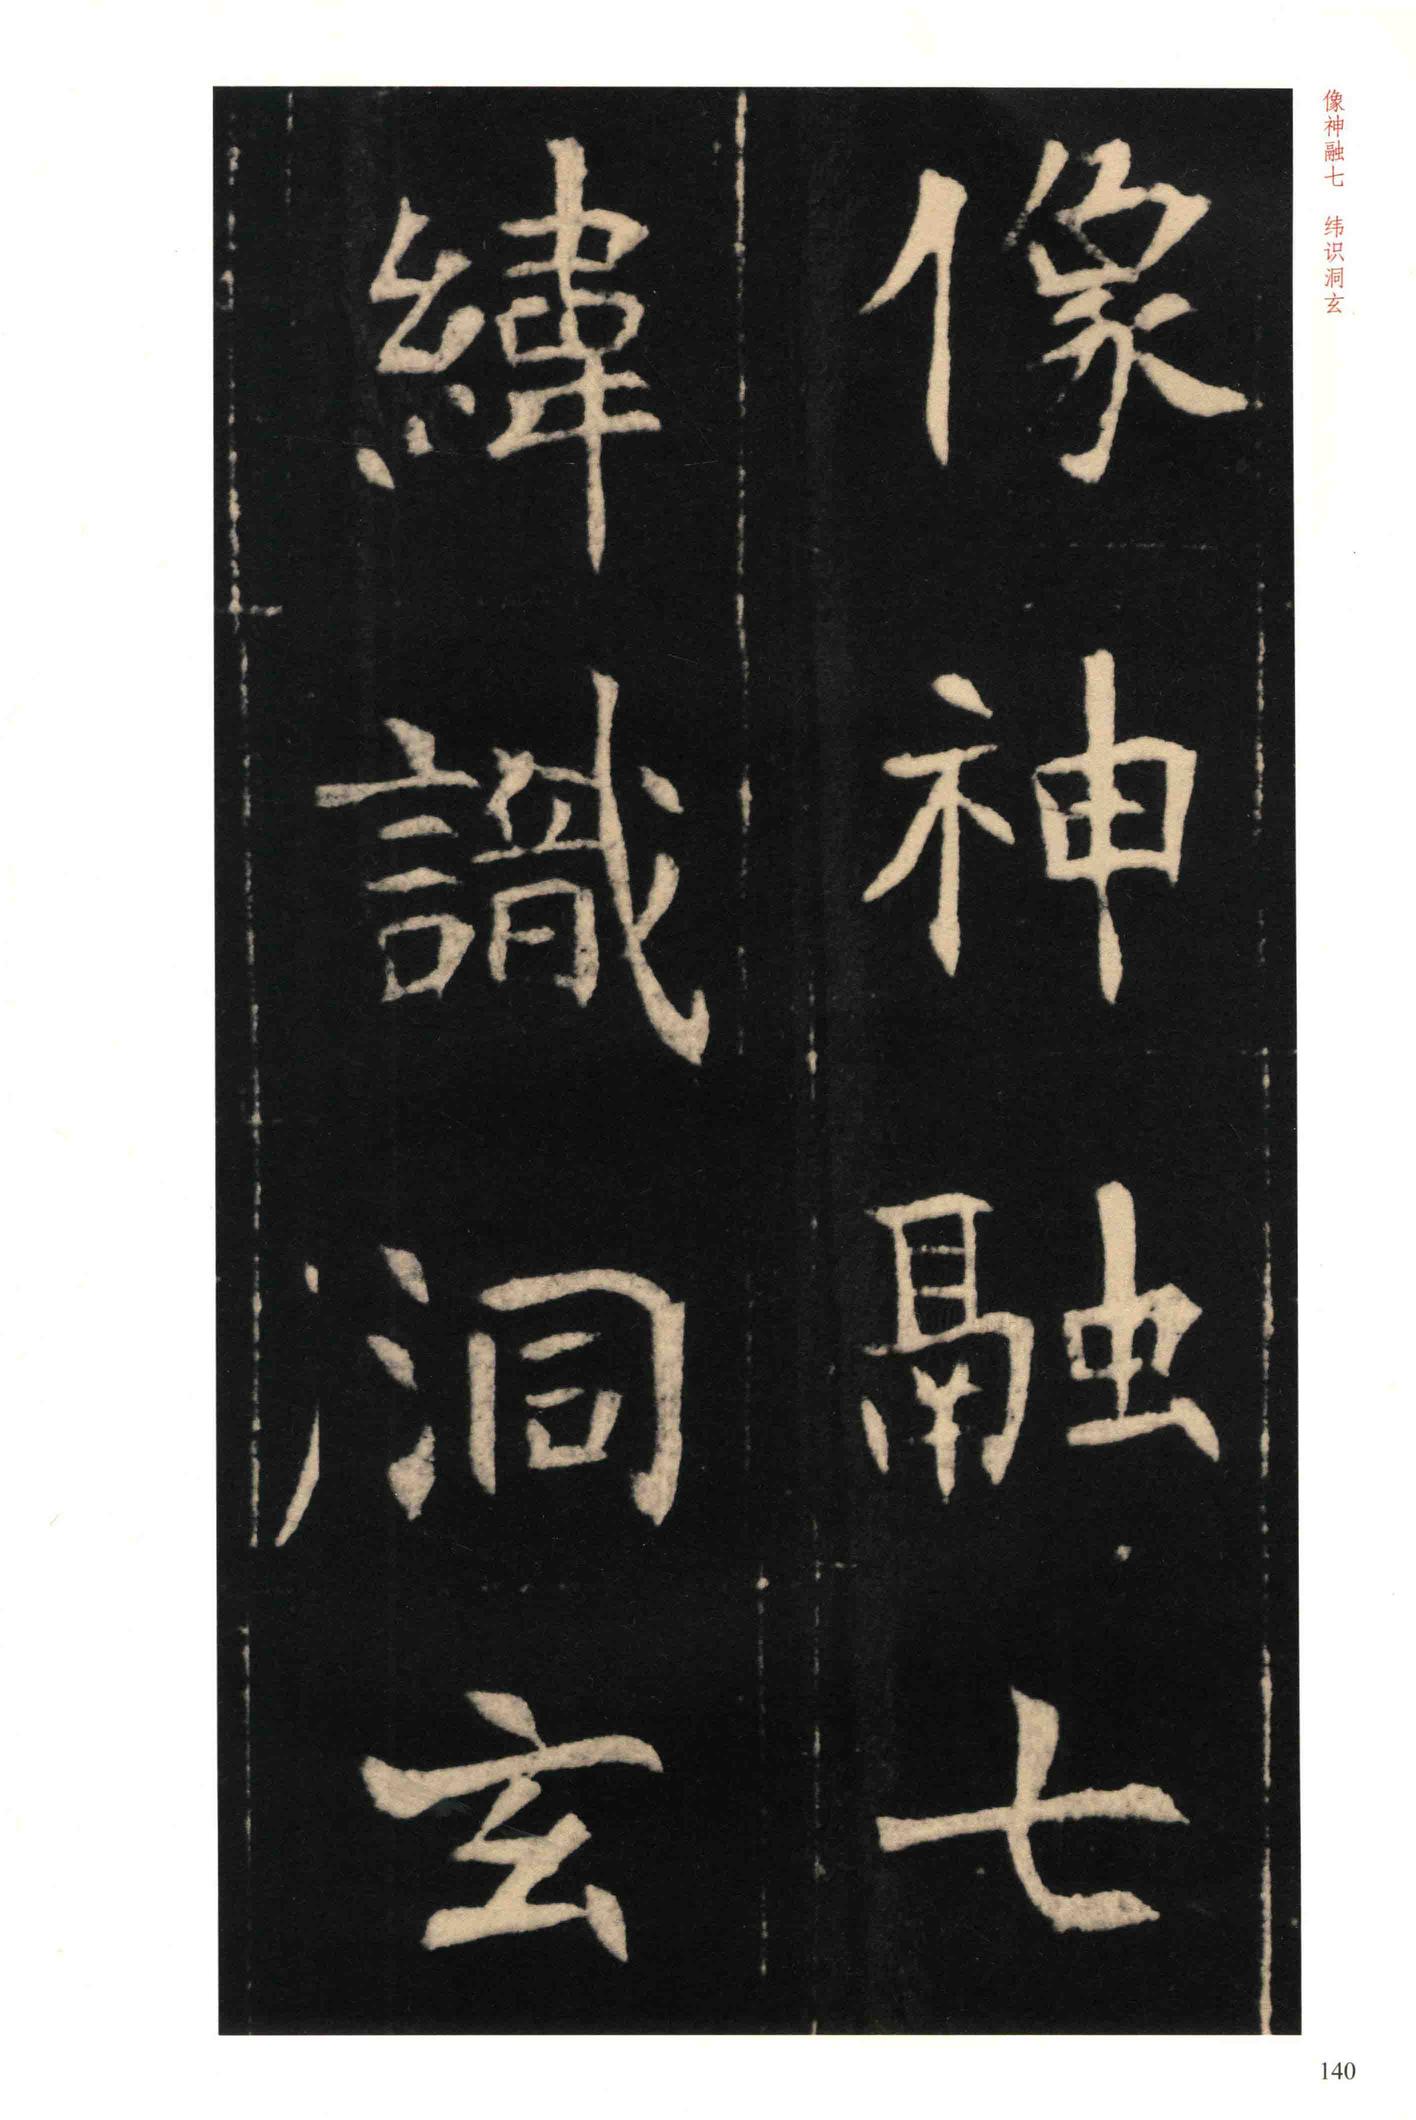 像神融七
緯識洞玄
像神融七 纬识洞玄
140